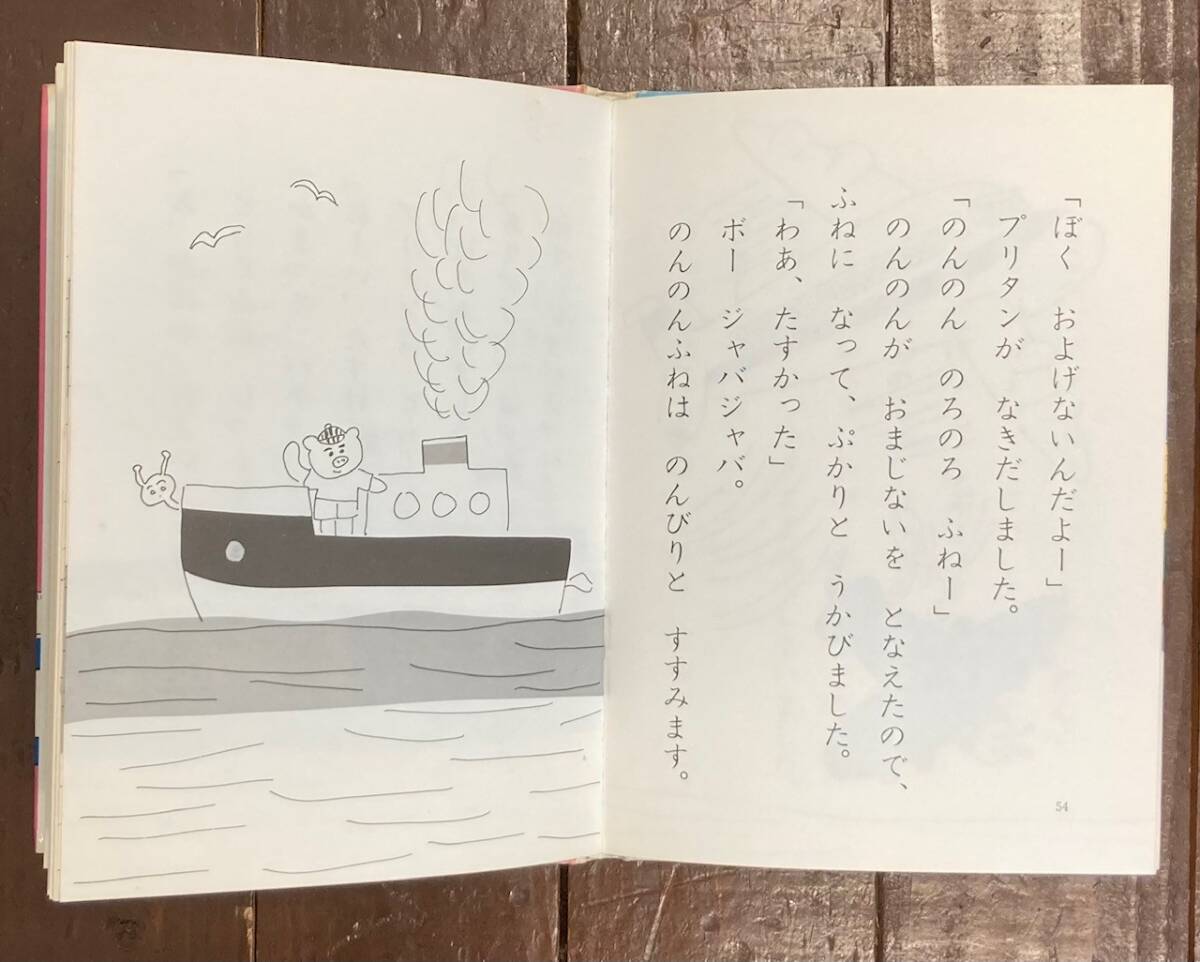 「ぼく　およげないんだよー」
プリタンが　なきだしました。
「のんのん　のろのろ　ふねー」
のんのんが　おまじないを　となえたので、
ふねに　なって、ぷかりと　うかびました。
「わあ、たすかった」
ボー　ジャバジャバ。
のんのんふねは　のんびりと　すすみます。
54